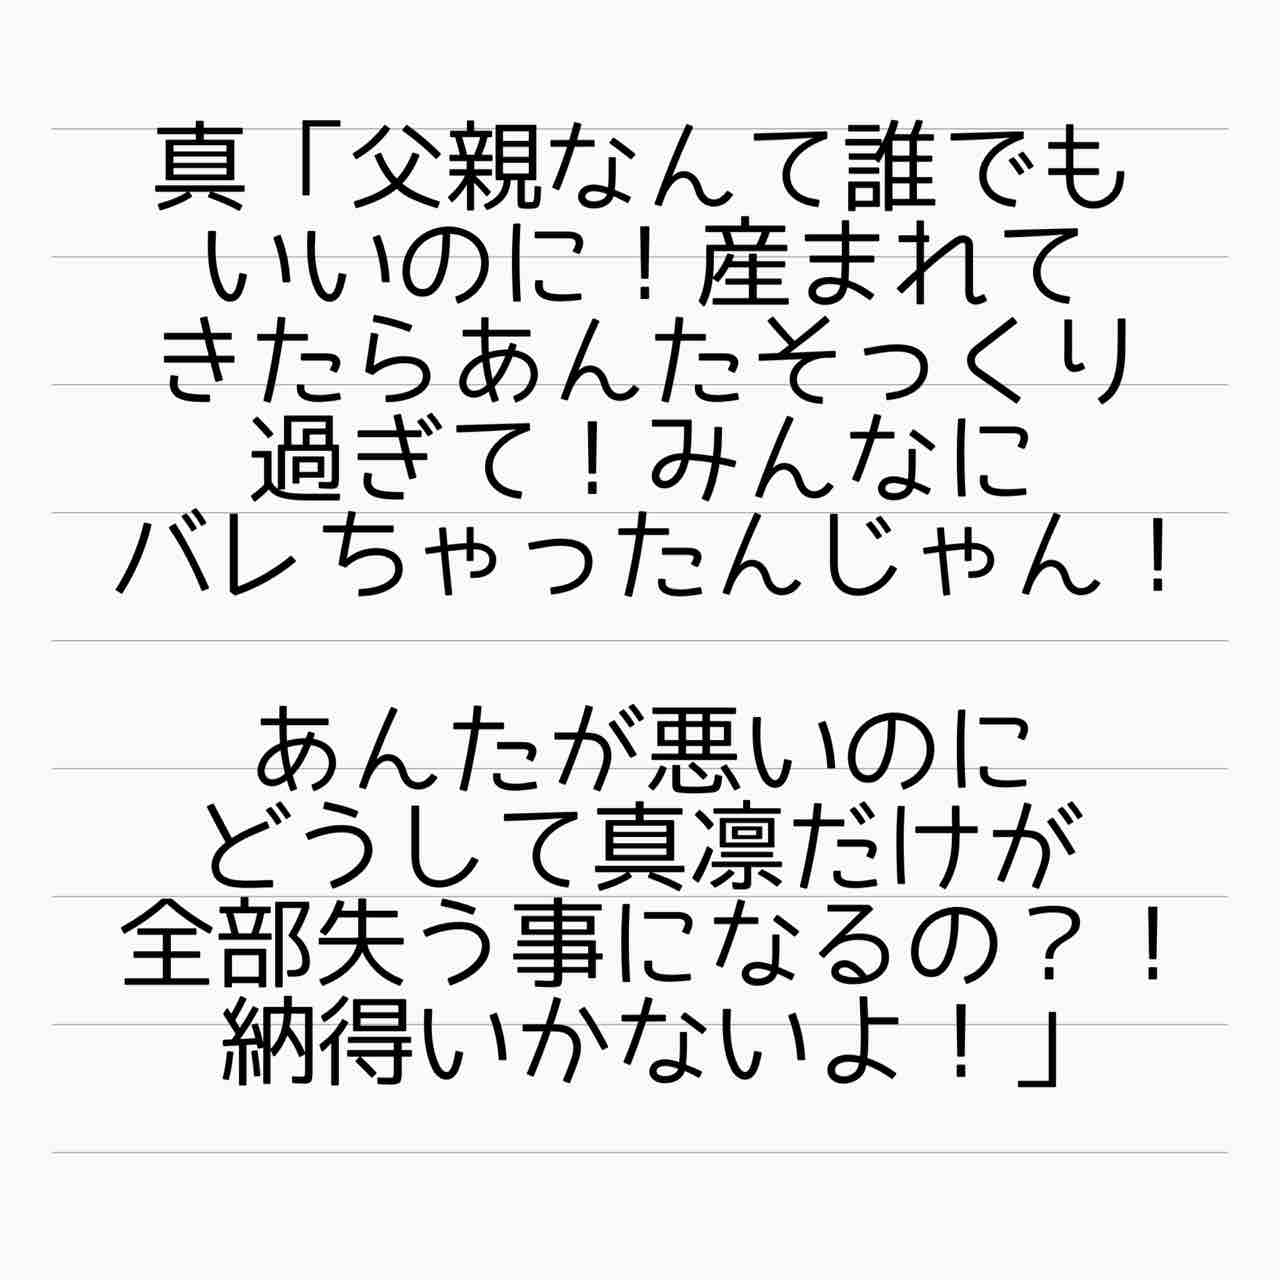 真「父親なんて誰でも
いいのに！産まれて
きたらあんたそっくり
過ぎて！みんなに
バレちゃったんじゃん！
あんたが悪いのに
どうして真凛だけが
全部失う事になるの？！
納得いかないよ！」